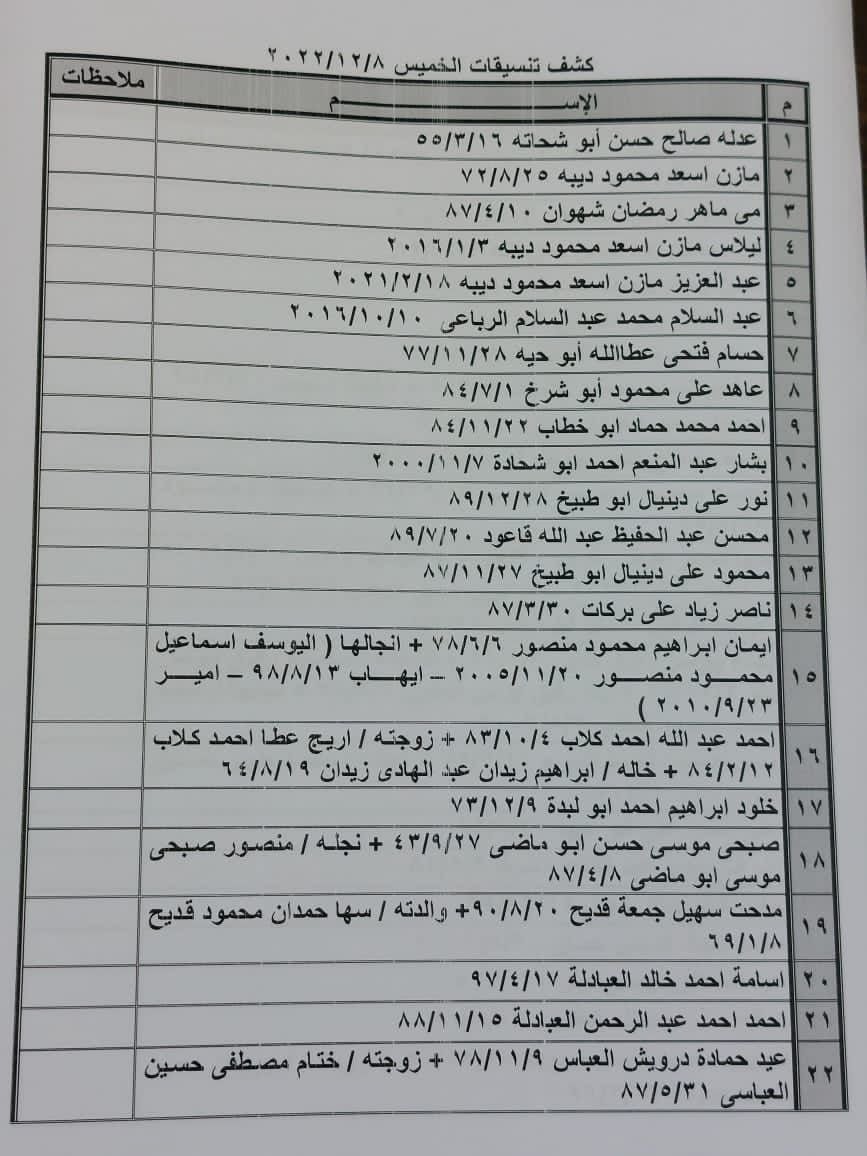 كشف تنسيقات الخميس ٢٠٢٢/١٢/٨
م الإســــــــــــــم ملاحظات
١ عدله صالح حسن أبو شحاته ٥٥/٣/١٦
٢ مازن اسعد محمود ديبه ٧٢/٨/٢٥
٣ مى ماهر رمضان شهوان ٨٧/٤/١٠
٤ ليلاس مازن اسعد محمود ديبه ٢٠١٦/١/٣
٥ عبد العزيز مازن اسعد محمود ديبه ٢٠٢١/٢/١٨
٦ عبد السلام محمد عبد السلام الرباعى ٢٠١٦/١٠/١٠
٧ حسام فتحى عطاالله أبو حيه ٧٧/١١/٢٨
٨ عاهد على محمود أبو شرخ ٨٤/٧/١
٩ احمد محمد حماد ابو خطاب ٨٤/١١/٢٢
١٠ بشار عبد المنعم احمد ابو شحادة ٢٠٠٠/١١/٧
١١ نور على دينيال ابو طبيخ ٨٩/١٢/٢٨
١٢ محسن عبد الحفيظ عبد الله قاعود ٨٩/٧/٢٠
١٣ محمود على دينيال ابو طبيخ ٨٧/١١/٢٧
١٤ ناصر زياد على بركات ٨٧/٣/٣٠
ايمان ابراهيم محمود منصور ٧٨/٦/٦ + انجالها ( اليوسف اسماعيل
١٥ محمــــود منصــــور ٢٠٠٥/١١/٢٠ – ايهــــاب ٩٨/٨/١٣ – اميــــر
٢٠١٠/٩/٢٣ )
احمد عبد الله احمد كلاب ٨٣/١٠/٤ + زوجته / اريج عطا احمد كلاب
١٦ ٨٤/٢/١٢ + خاله / ابراهيم زيدان عبد الهادى زيدان ٦٤/٨/١٩
١٧ خلود ابراهيم احمد ابو لبدة ٧٣/١٢/٩
صبحى موسى حسن ابو ماضى ٤٣/٩/٢٧ + نجله / منصور صبحى
١٨ موسى ابو ماضى ٨٧/٤/٨
مدحت سهيل جمعة قديح ٩٠/٨/٢٠+ والدته / سها حمدان محمود قديح
١٩ ٦٩/١/٨
٢٠ اسامة احمد خالد العبادلة ٩٧/٤/١٧
٢١ احمد احمد عبد الرحمن العبادلة ٨٨/١١/١٥
عيد حمادة درويش العباس ٧٨/١١/٩ + زوجته / ختام مصطفى حسين
٢٢ العباسى ٨٧/٥/٣١